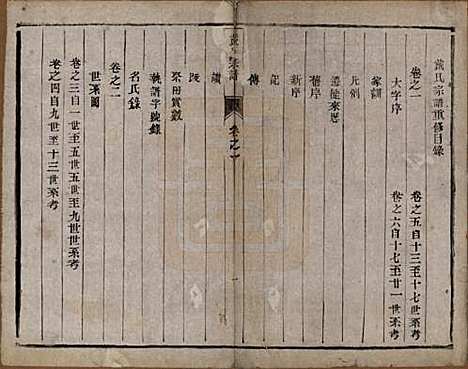 黄氏宗譜重修目錄
卷之一
大字序
家訓
凡例
遷徙來歷
舊序
新序
記
傳
黄氏宗譜
卷之一
一
讚
跋
祭田實數
執譜字號錄
名氏錄
卷之二
世系圖
卷之三自一世至五世五世至九世世系考
卷之四自九世至十三世系考
卷之五自十三至十七世系考
卷之六自十七至廿一世系考